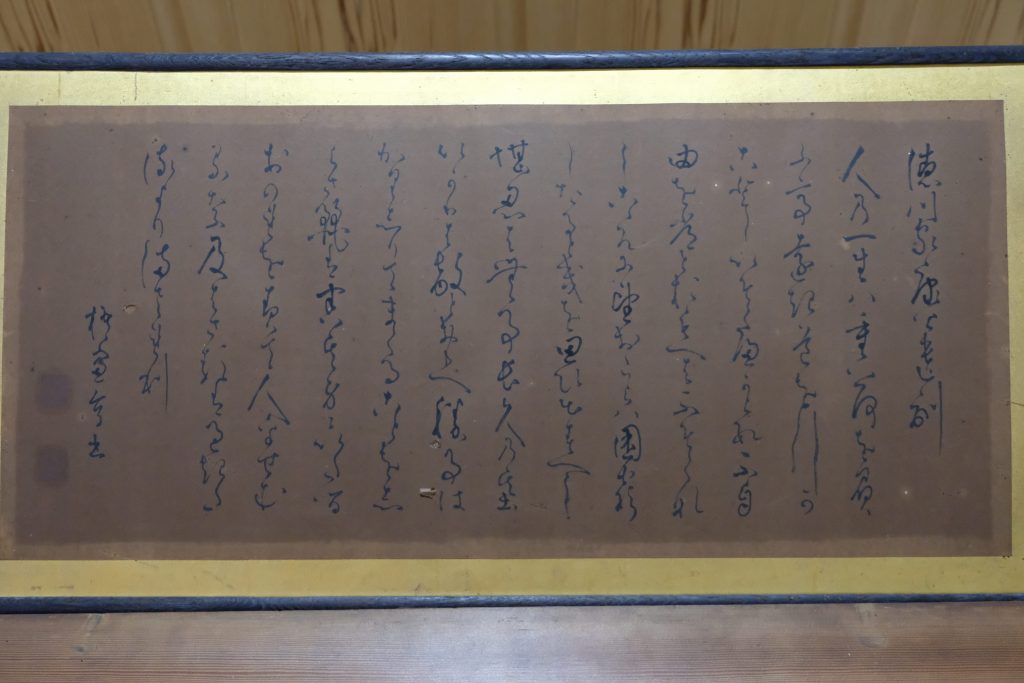 徳川家康公遺訓
人乃一生ハ重荷を負
ふて遠き道を行くか
ことしいそくへからす不自
由を常とおもへハ不足な
しこゝろに望おこらハ困窮
したる時を思ひ出すへし
堪忍ハ無事長久乃基
いかりハ敵とおもへ勝事は
かりしりてまくる事をしら
されハ害其身にいたる
おのれを責て人をせむ
るな及はさるハ過た
るよりまされり